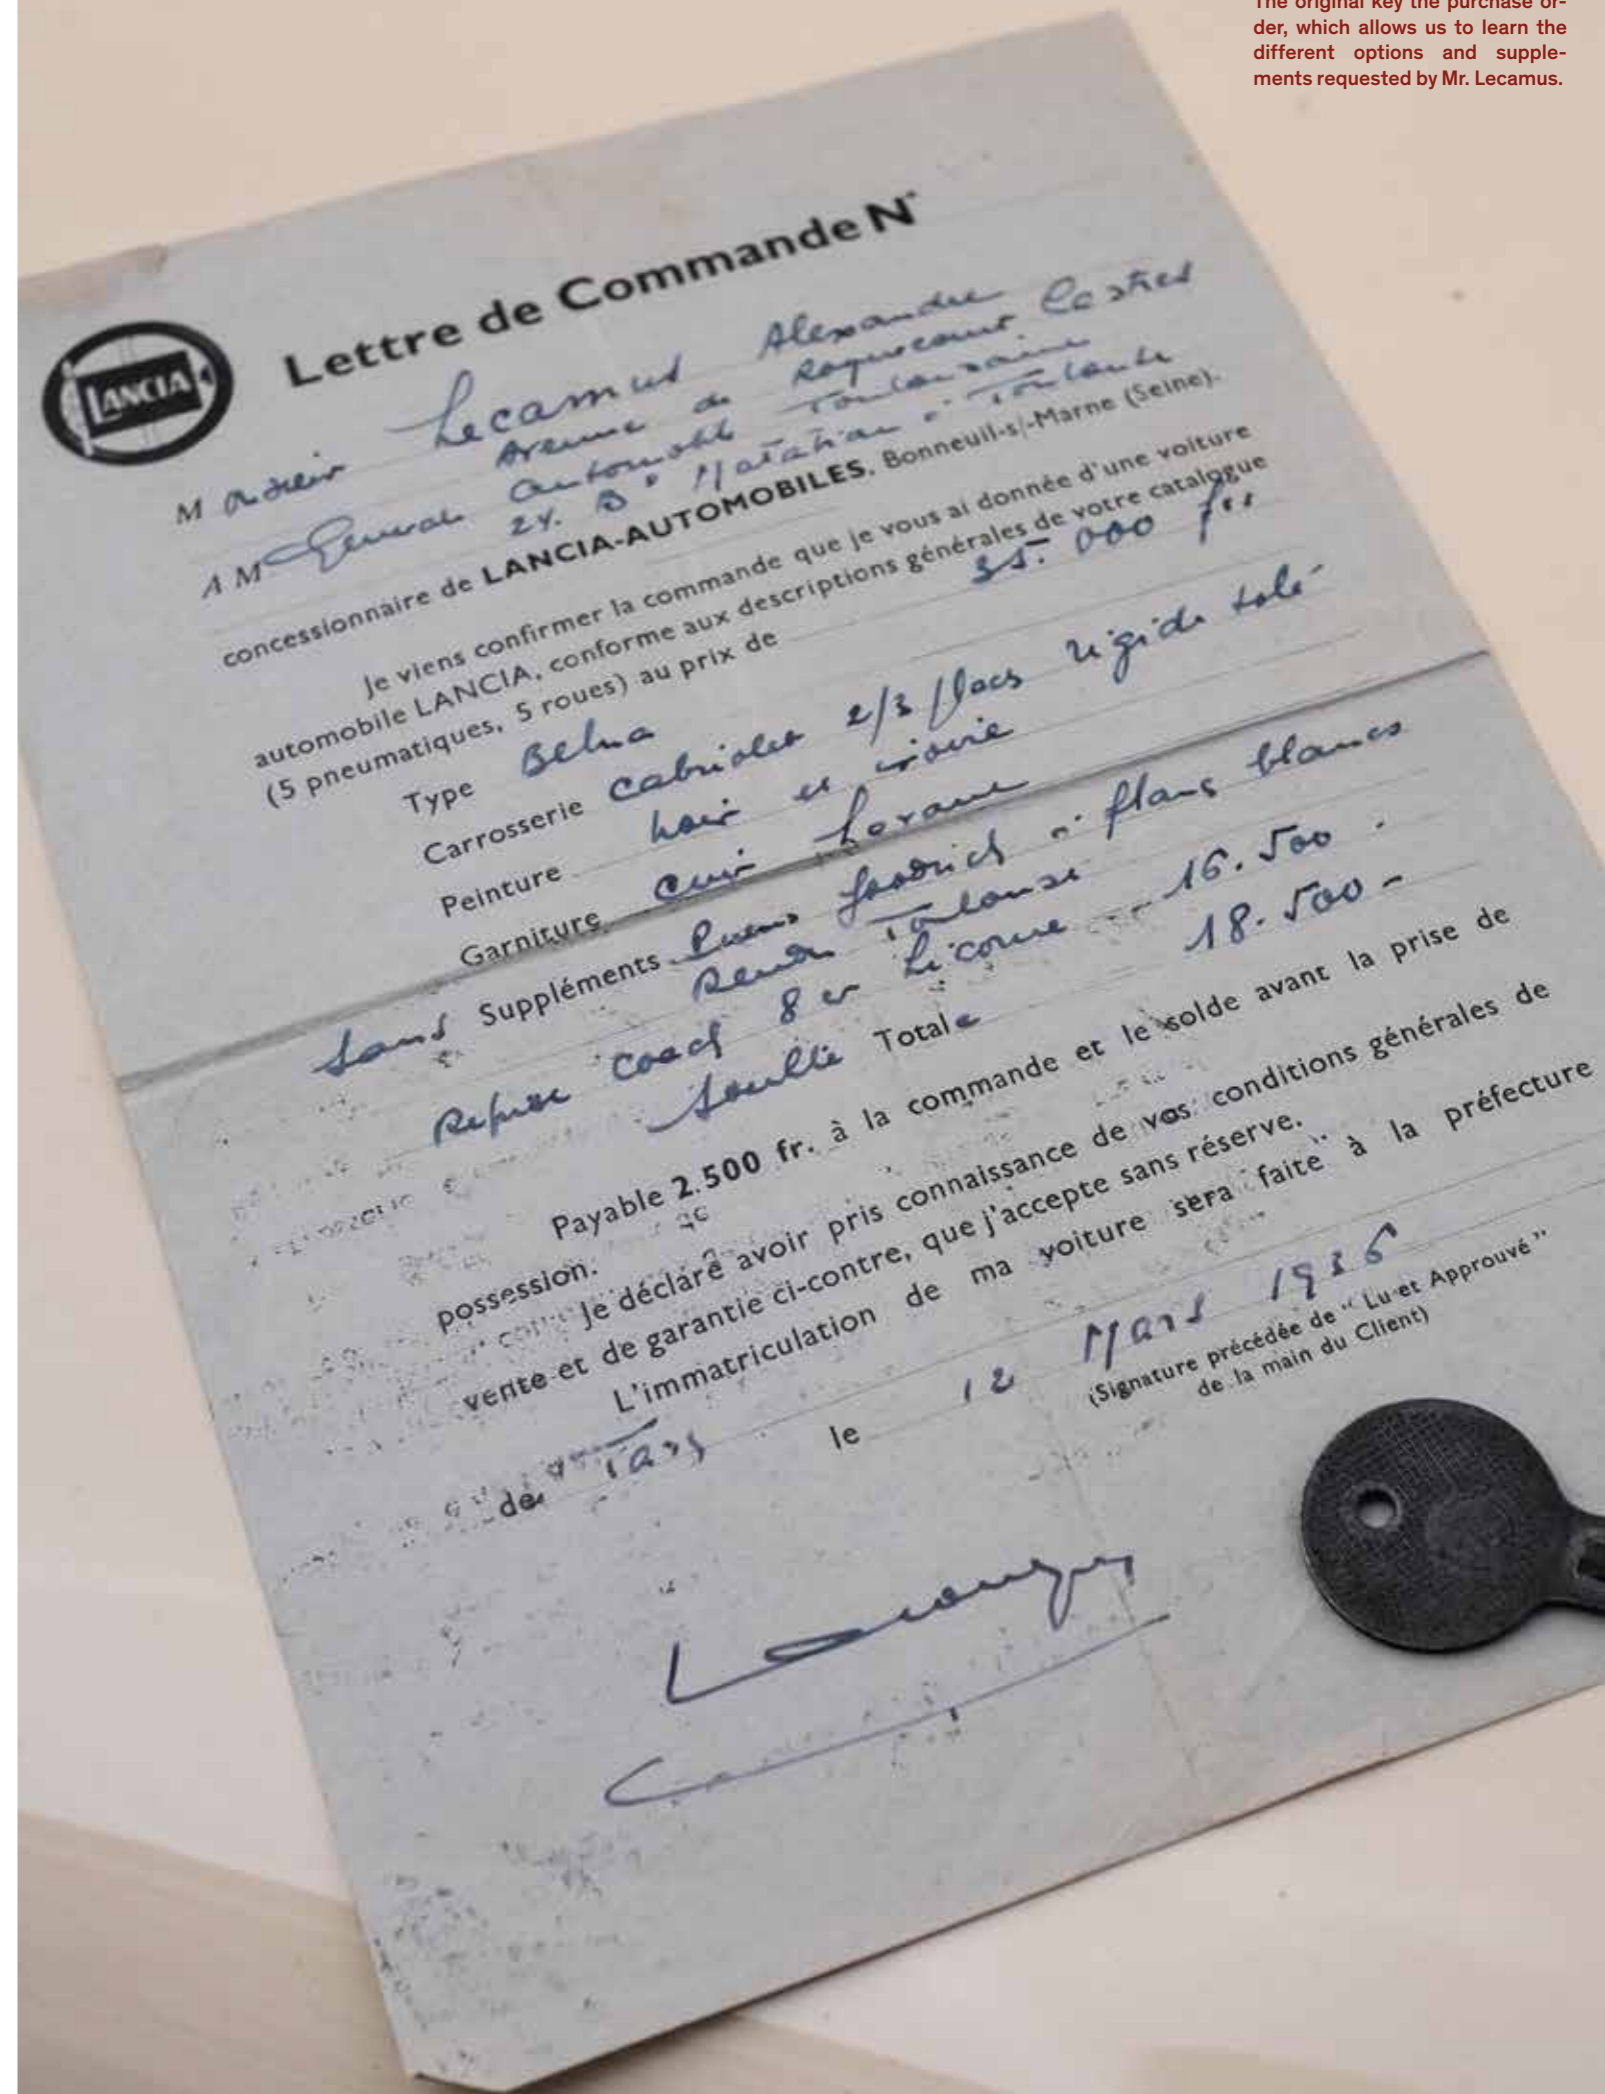 The original key the purchase or-
der, which allows us to learn the
different options and supple-
ments requested by Mr. Lecamus.
LANCIA
Lettre de Commande N°
Monsieur Lecamus Alexandre
Avenue de Roquecourt Castres
A M General Automobile Toulousaine
24. B d Matabiau à Toulouse
concessionnaire de LANCIA-AUTOMOBILES, Bonneuil-s/-Marne (Seine).
Je viens confirmer la commande que je vous ai donnée d'une voiture
automobile LANCIA, conforme aux descriptions générales de votre catalogue
(5 pneumatiques, 5 roues) au prix de 35.000 frs
Type Belna
Carrosserie Cabriolet 2/3 places rigide tolé
Peinture noir et ivoire
Garniture cuir
Sans Suppléments Pneus Goodrich à flancs blancs
Rendu Toulouse
Reprise Coach 8 cv Licorne 16.500
Soulte Total 18.500 -
Payable 2.500 fr. à la commande et le solde avant la prise de
possession.
Je déclare avoir pris connaissance de vos conditions générales de
vente et de garantie ci-contre, que j'accepte sans réserve.
L'immatriculation de ma voiture sera faite à la préfecture
de Tarn le 12 Mars 1936
(Signature précédée de "Lu et Approuvé"
de la main du Client)